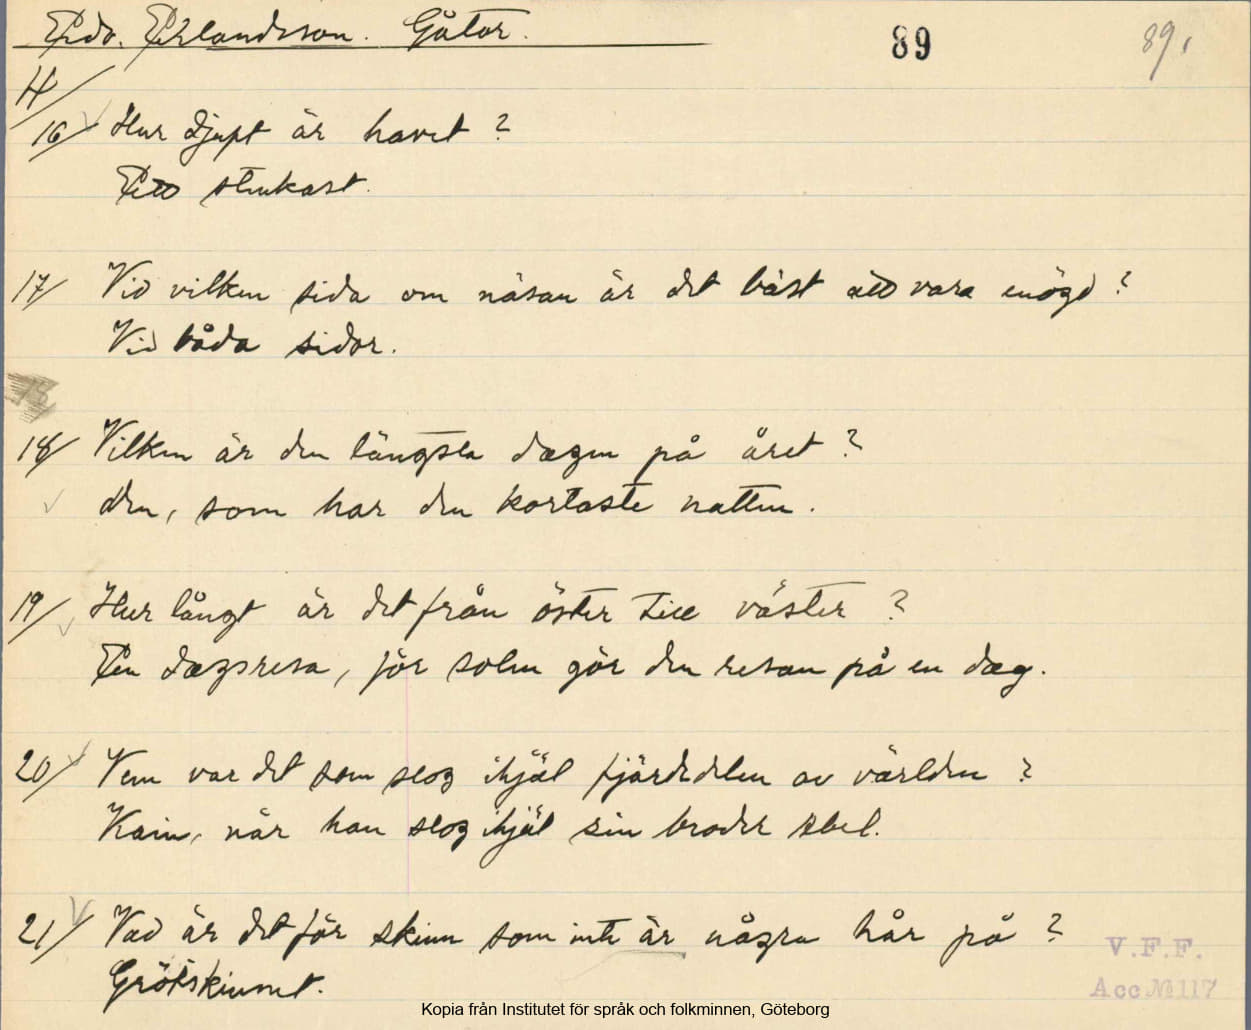 Edv. Erlandsson. Gåtor. 89 89.
4/
16/ Hur djupt är havet?
Ett stenkast.
17/ Vid vilken sida om näsan är det bäst att vara enögd?
Vid båda sidor.
18/ Vilken är den längsta dagen på året?
den, som har den kortaste natten.
19/ Hur långt är det från öster till väster?
En dagsresa, för solen gör den resan på en dag.
20/ Vem var det som slog ihjäl fjärdedelen av världen?
Kain, när han slog ihjäl sin broder Abel.
21/ Vad är det för skinn som inte är några hår på?
Grötskinnet.
V.F.F.
Acc № 117
Kopia från Institutet för språk och folkminnen, Göteborg